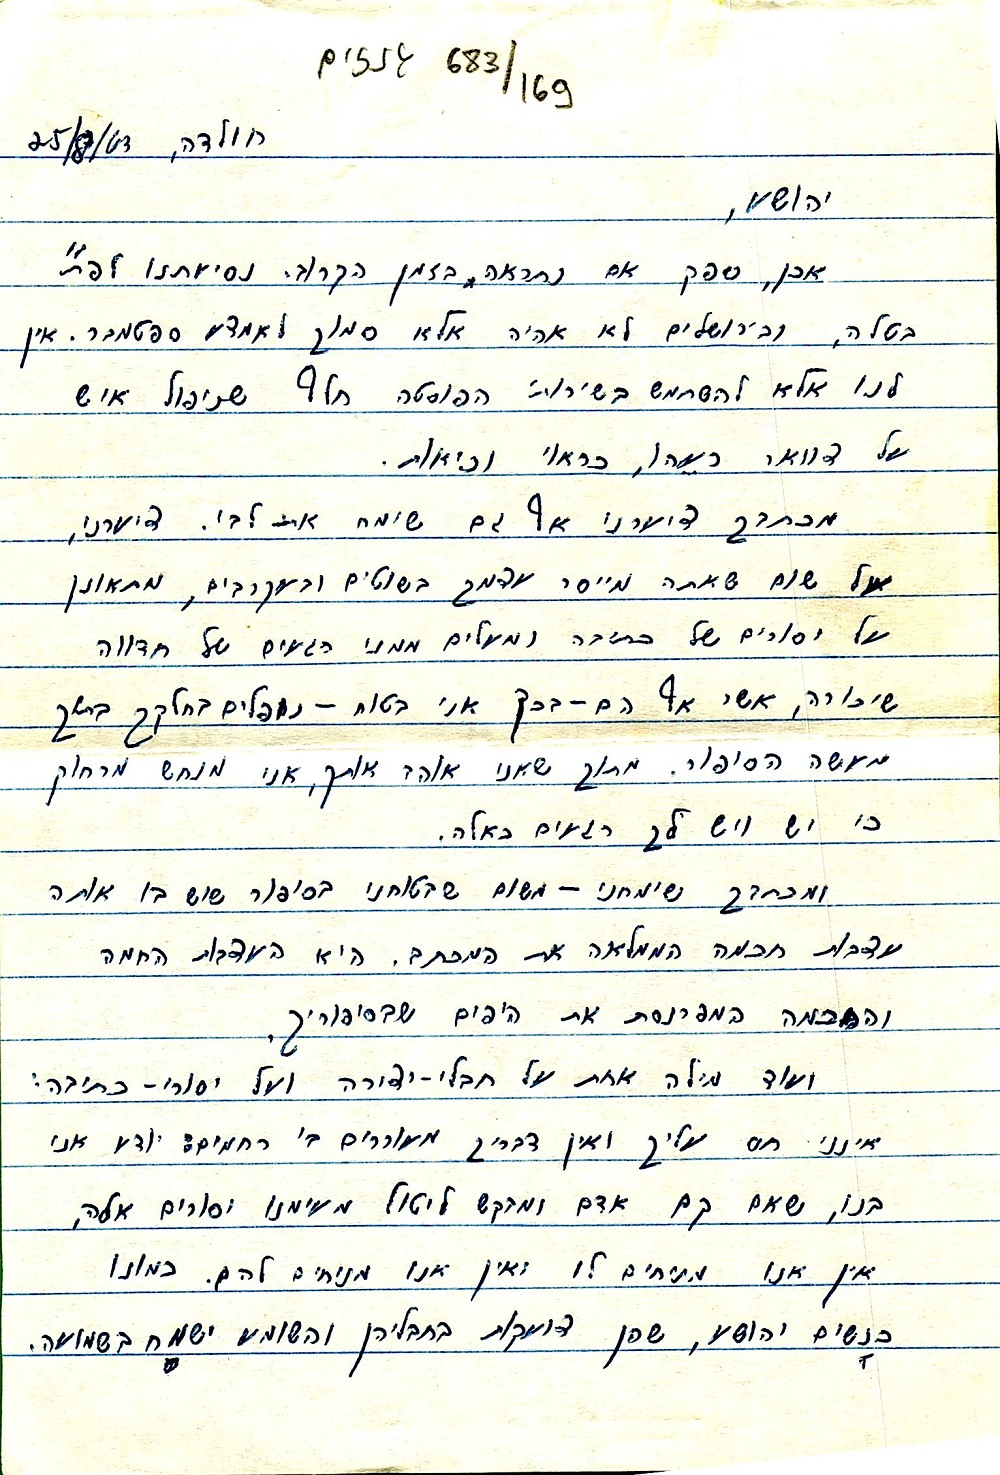 גנזים 683/169
חולדה, 25/8/63
יהושע,
אכן, ספק אם נתראה בזמן הקרוב. נסיעתנו לפת"ת
בטלה, ובירושלים לא אהיה אלא סמוך לאמצע ספטמבר. אין
לנו אלא להשתמש בשירותי הפוסטה חלף שניפול איש
על צוואר רעהו, כראוי וכיאות.
מכתבך ציערני אף גם שימח את לבי. ציערני,
על שום שאתה מייסר עצמך בשוטים ובעקרבים, מתאונן
על יסורים של כתיבה ומעלים ממני רגעים של חדווה
שיכורה, אשר אף הם – בכך אני בטוח – נופלים בחלקך בתוך
מעשה הסיפור. מתוך שאני אוהב אותך, אני מנחש מרחוק
כי יש ויש לך רגעים כאלה.
ומכתבך שימחני – משום שבטוחני בסיפור שיש בו אותה
עצבות חכמה הממלאה את המכתב. היא העצבות החמה
והחכמה המפרנסת את היפים שבסיפוריך.
ועוד מילה אחת על חבלי-יצירה ועל יסורי-כתיבה:
אינני חס עליך ואין דבריך מעוררים בי רחמים: יודע אני
בנו, שאם קם אדם ומבקש ליטול מעימנו יסורים אלה,
אין אנו מניחים לו ואין אנו מניחים להם. כמונו
כנשים יהושע, שהן צועקות בחבליהן והשומע ישמח בשמועה.